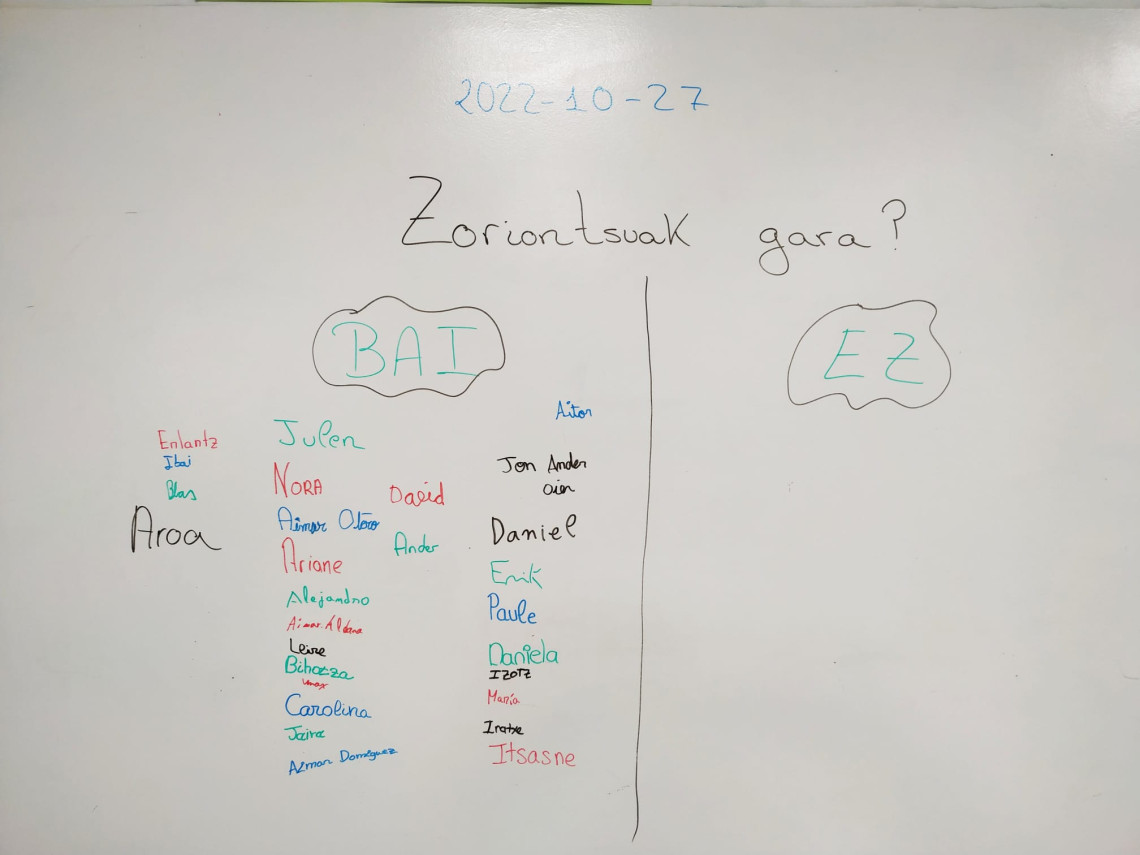 2022-10-27
Zoriontsuak gara?
BAI
EZ
Aitor
Enlantz
Ibai
Blas
Aroa
Julen
NORA
Aimar Otero
Ariane
Alejandro
Aimar Aldana
Leire
Bihotza
Unax
Carolina
Jaira
Aimar Domínguez
David
Ander
Jon Ander
Oier
Daniel
Erik
Paule
Daniela
IZOTZ
María
Iratxe
Itsasne